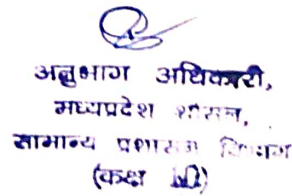 अनुभाग अधिकारी,
मध्यप्रदेश शासन,
सामान्य प्रशासन विभाग
(कक्ष